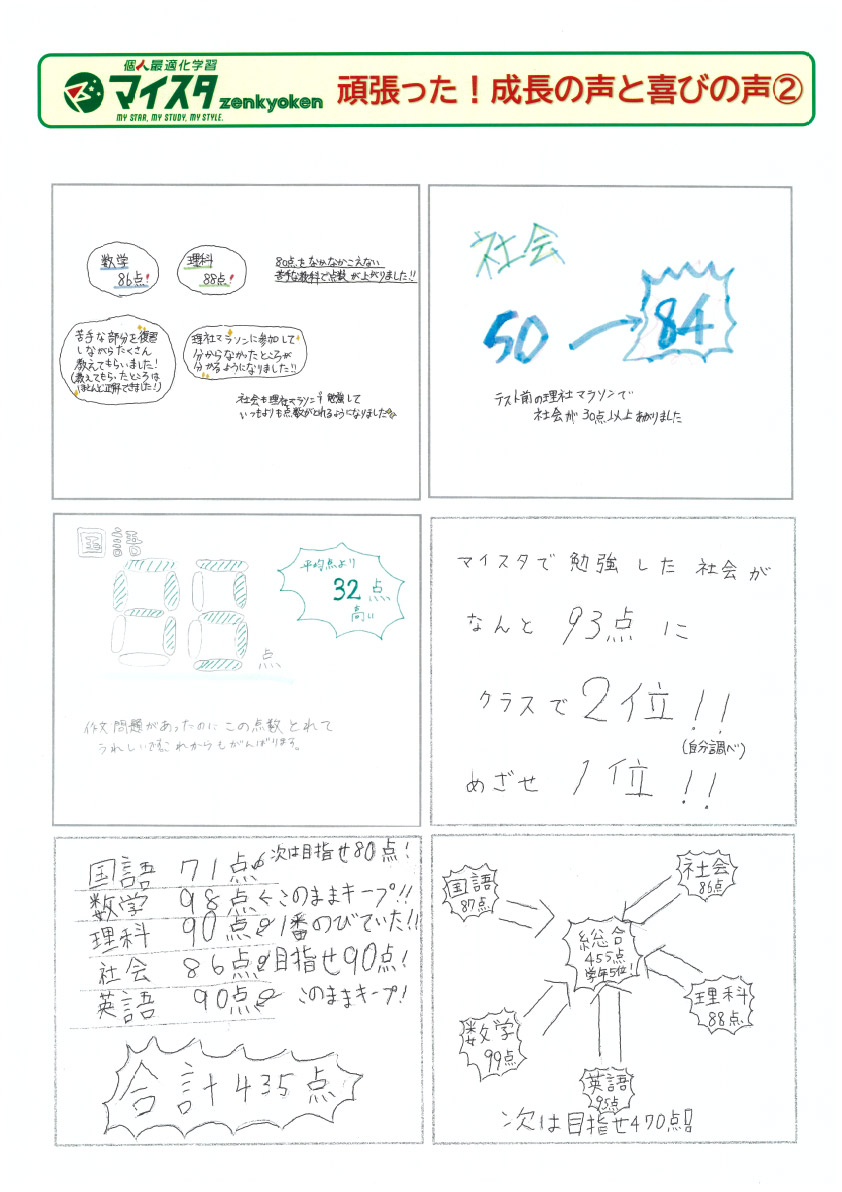 個人最適化学習
マイスタ
zenkyoken
MY STAR, MY STUDY, MY STYLE.
頑張った！成長の声と喜びの声②
数学
86点!
理科
88点!
80点をなかなかこえない
苦手な教科で点数が上がりました!!
苦手な部分を復習
しながらたくさん
教えてもらいました!
(教えてもらったところは
ほとんど正解できました!)
理社マラソンに参加して
分からなかったところが
分かるようになりました!!
社会も理社マラソンで勉強して
いつもよりも点数がとれるようになりました
社会
50→84
テスト前の理社マラソンで
社会が30点以上あがりました
国語
点
平均点より
32点
高い
作文問題があったのにこの点数とれて
うれしいですこれからもがんばります。
マイスタで勉強した社会が
なんと93点に
クラスで2位!!
(自分調べ)
めざせ1位!!
国語 71点 次は目指せ80点!
数学 98点 このままキープ!!
理科 90点 1番のびていた!!
社会 86点 目指せ90点!
英語 90点 このままキープ!
合計435点
国語
87点
社会
86点
総合
455点
学年5位!
理科
88点
数学
99点
英語
95点
次は目指せ470点!!